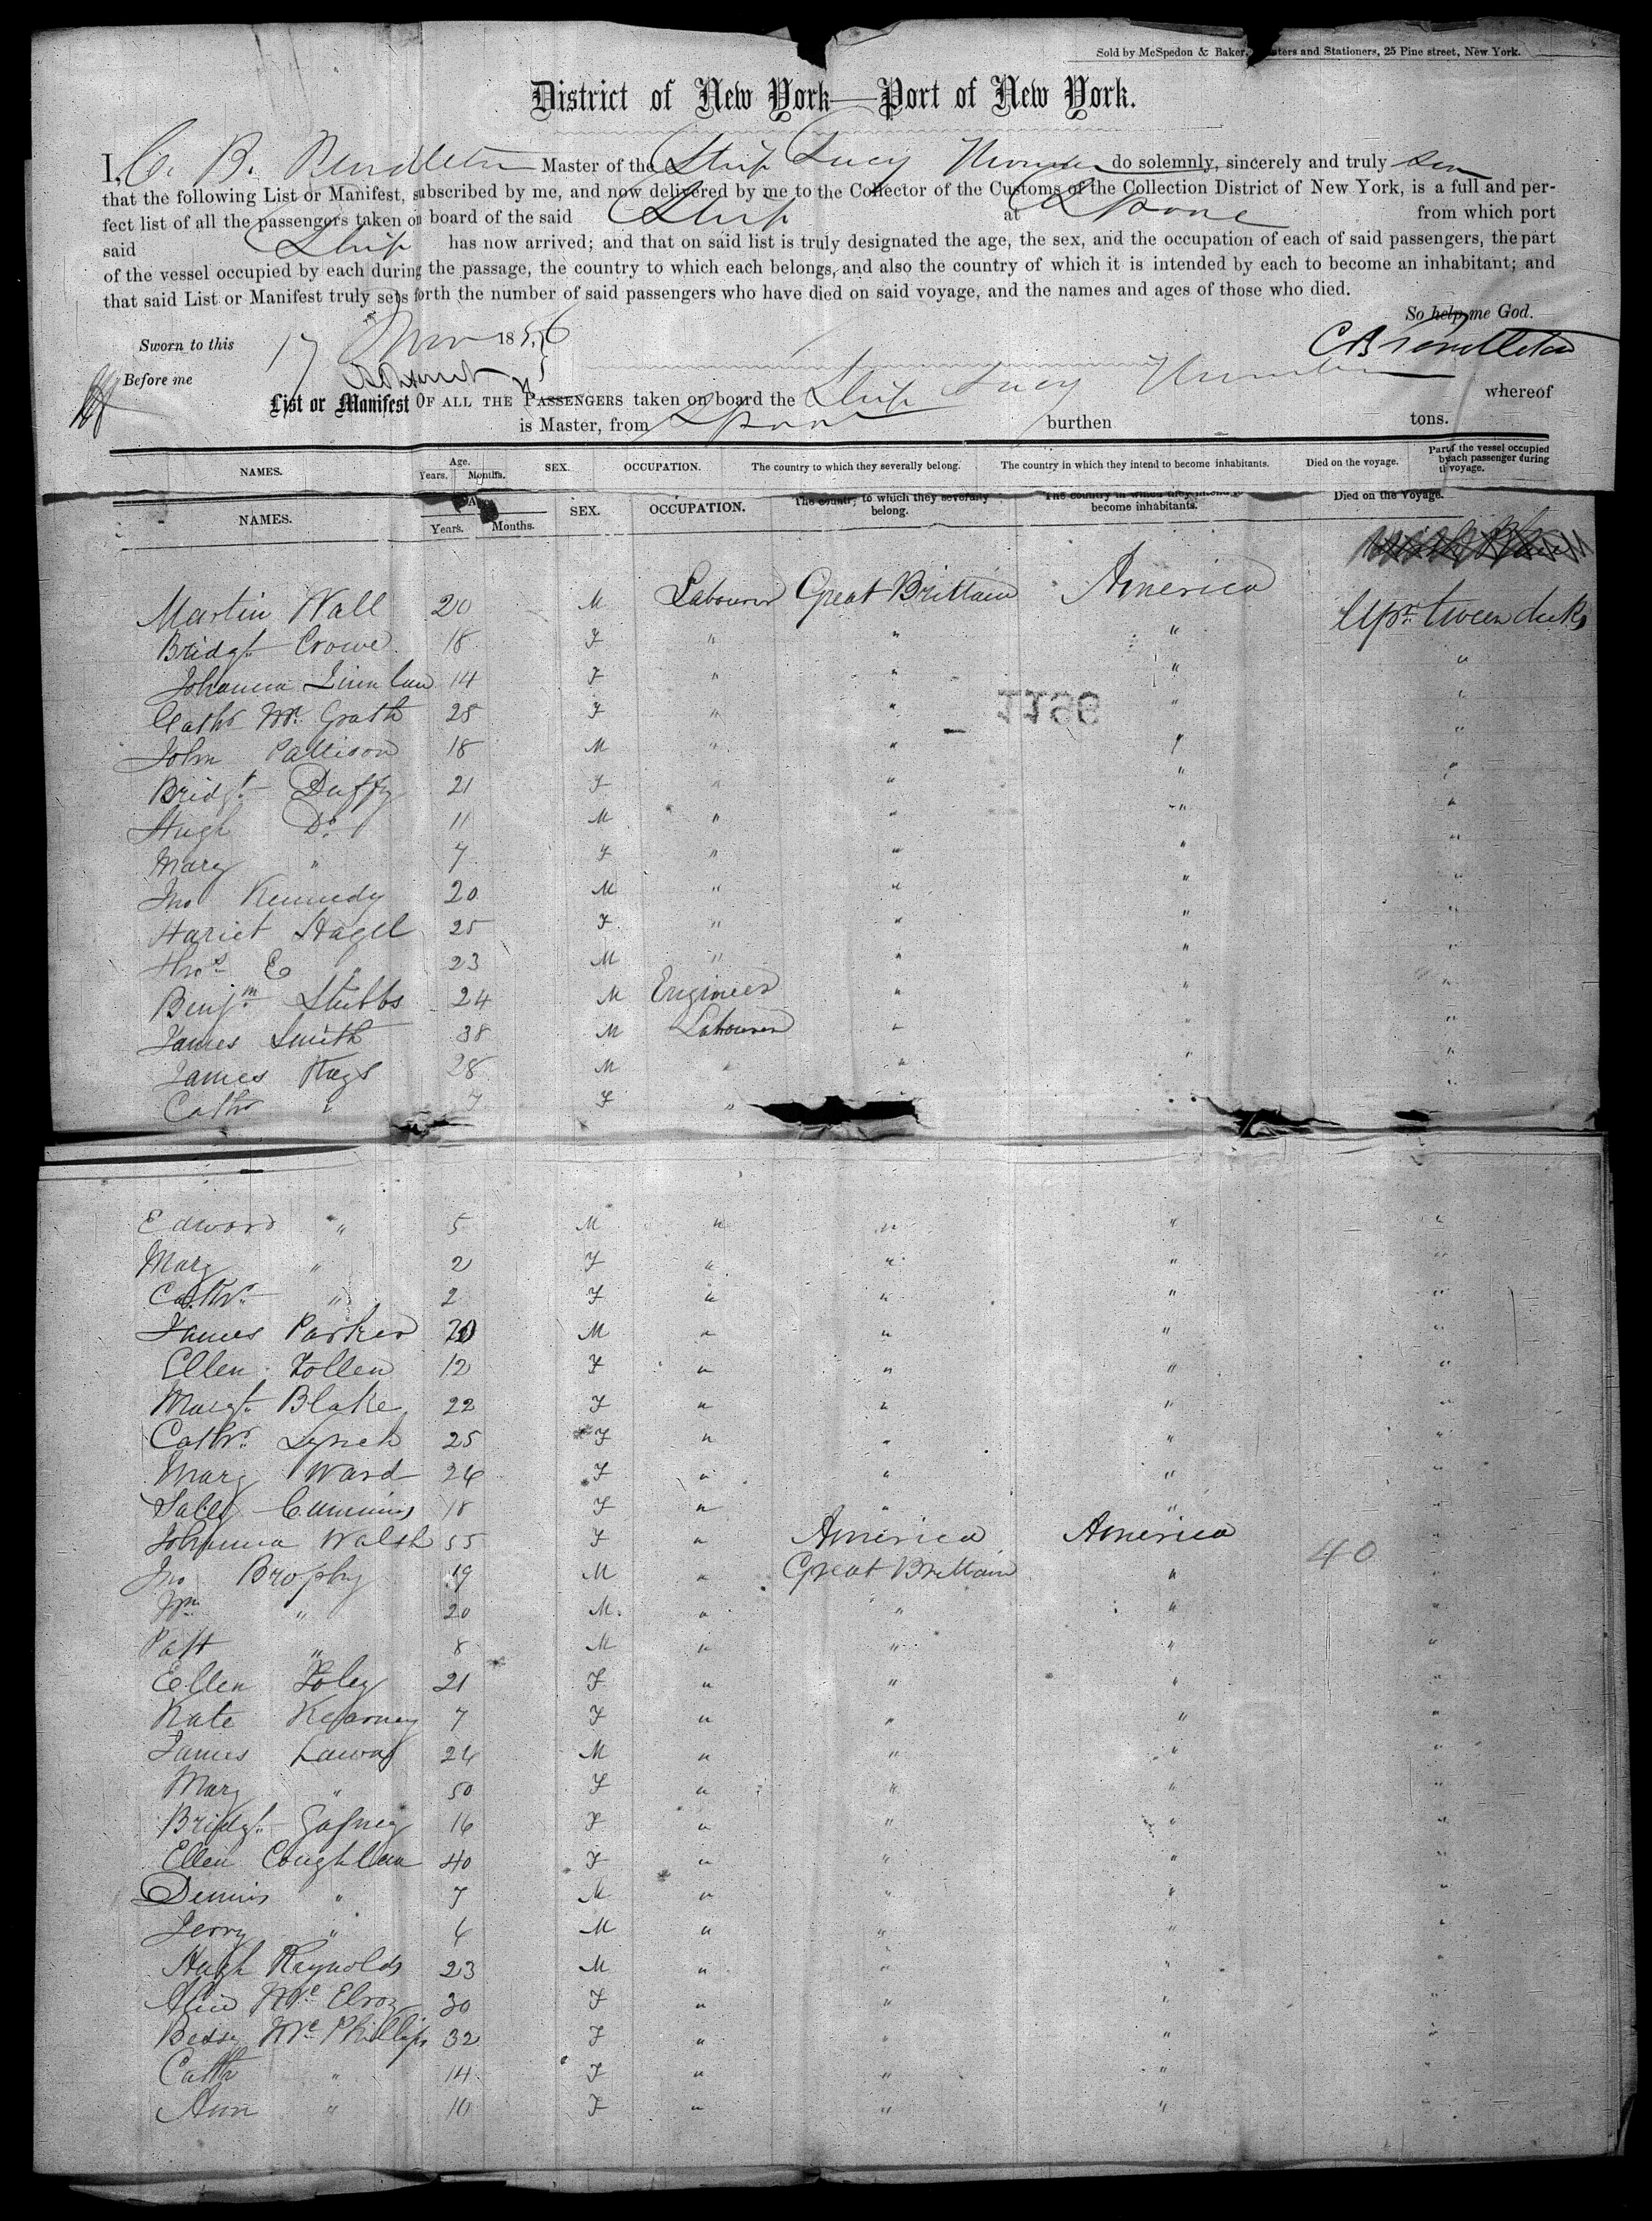 Sold by McSpedon & Baker, Stationers, 25 Pine street, New York.
District of New York—Port of New York.
I, C. B. Pendleton Master of the Ship Lucy do solemnly, sincerely and truly
that the following List or Manifest, subscribed by me, and now delivered by me to the Collector of the Customs of the Collection District of New York, is a full and per-
fect list of all the passengers taken on board of the said Ship at from which port
said Ship has now arrived; and that on said list is truly designated the age, the sex, and the occupation of each of said passengers, the part
of the vessel occupied by each during the passage, the country to which each belongs, and also the country of which it is intended by each to become an inhabitant; and
that said List or Manifest truly sets forth the number of said passengers who have died on said voyage, and the names and ages of those who died.
So help me God.
Sworn to this 17 Nov 1856
C B Pendleton
Before me
List or Manifest OF ALL THE PASSENGERS taken on board the Ship Lucy whereof
is Master, from burthen tons.
NAMES. Age. Years. Months. SEX. OCCUPATION. The country to which they severally belong. The country in which they intend to become inhabitants. Died on the voyage. Part of the vessel occupied by each passenger during the voyage.
NAMES. Age. Years. Months. SEX. OCCUPATION. The country to which they severally belong. The country in which they intend to become inhabitants. Died on the Voyage.
Martin Wall 20 M Labourer Great Brittain America Upr. tween decks
Bridgt. Crowe 18 F " " " "
Johanna 14 F " " " "
Cathr Mc Grath 25 F " " " "
1196
John Pattison 18 M " " " "
Bridgt. Duffy 21 F " " " "
Hugh Do. 11 M " " " "
Mary " 7 F " " " "
Jno Kennedy 20 M " " " "
Hariet Hagel 25 F " " " "
Thos E " 23 M " " " "
Benjm. Stubbs 24 M Engineer " " "
James Smith 38 M Labourer " " "
James 28 M " " " "
Cathr " 7 F "
Edward " 5 M " " " "
Mary " 2 F " " " "
Cathr. " 2 F " " " "
James Parker 20 M " " " "
Ellen Follen 12 F " " " "
Margt. Blake 22 F " " " "
Cathr. Lynch 25 F " " " "
Mary Ward 24 F " " " "
Sally Cummins 18 F " " " "
Johanna Walsh 55 F " America America "
40
Jno Brophy 19 M " Great Brittain " "
Wm " 20 M. " " " "
Patt " 8 M " " " "
Ellen Foley 21 F " " " "
Kate Kearney 7 F " " " "
James 24 M " " " "
Mary " 50 F " " " "
Bridgt. Gafney 16 F " " " "
Ellen Coughlan 40 F " " " "
Dennis " 7 M " " " "
Jerry " 6 M " " " "
Hugh Reynolds 23 M " " " "
Mc Elroy 30 F " " " "
Bessy Mc Phillips 32 F " " " "
Cathr " 14 F " " " "
Ann " 10 F " " "